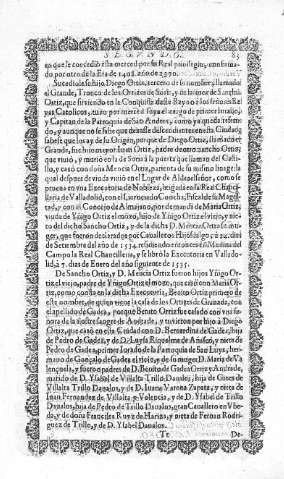 SEGVNDO. 85
no que le concedió esta merced por su Real privilegio, confirmado por otro de la Era de 1408. año de 1370.
Sucedióle su hijo Diego Ortiz, tercero de su nombre, llamado el Grande, Tronco de los Ortizes de Soria, y de la linea de Sancho Ortiz, que sirviendo en la Conquista deste Rayno à los señores Reyes Catolicos,
y Capitan de la Parroquia de San Andres, como ya queda informado, y aunque no se sabe que dèl aya descendientes en esta Ciudad, sabese que los ay de su Origen, porque de Diego Ortiz, llamado el Grande, fue hijo mayor Iuan Ortiz, padre de otro Sancho Ortiz, que viviò, y muriò en la de Soria à la puerta que llaman del Castillo, y casò con doña Mencia Ortiz, parienta de su mismo linage la qual despues de viuda viviò en el Lugar de Aldealseñor, como se prueva en vna Executoria de Nobleza, litigada en la Real Chancilleria de Valladolid, con el Licenciado
viuda de Yñigo Ortiz el moço, hijo de Yñigo Ortiz el viejo, y nieto del dicho Sancho Ortiz, y de la dicha D. Mencia Ortiz su muger, que fueron declarados por Cavalleros Hijosdalgo à 22. dias de Setiembre del año de 1534. residiendo entonces en Medina del Campo la Real Chancilleria, y se librò la Executoria en Valladolid, à 7. dias de Enero del año siguiente de 1535.
De Sancho Ortiz, y D. Mencia Ortiz fueron hijos Yñigo Ortiz, el viejo, padre de Yñigo Ortiz el moço, que casò con Maria Ortiz, como consta en la dicha Executoria, Benito Ortiz primero de este nombre, de quien vino la casa de los Ortizes de Granada, con el apellido de Gadea, porque Benito Ortiz fue casado con vna señora de la ilustre sangre de Agreda, y tuvieron por hijo à Diego Ortiz, que casò en esta Ciudad con D. Bernardina de Gadea, hija de Pedro de Gadea, y de D. Luysa Riquelme de Aviles, y nieta de Pedro de Gadea, primer Iurado de la Parroquia de San Luys, hermano de Gonçalo de Gadea el viejo, y de su muger D. Maria de Valençuela, y fueron padres de D. Benito de Gadea Ortiz y Andrade, marido de D. Ysabel de Villalta Trillo Davalos, hija de Gines de Villalta Trillo Davalos, y de D. Iuana Varona Zapata, y nieta de Iuan Fernandez de Villalta y Valencia, y de D. Ysabel de Trillo Davalos, hija de Pedro de Trillo Davalos, gran Cavallero en Vbeda, y de doña Francisca Ruyz de Hariza, y nieta de Fernan Rodriguez de Trillo, y de D. Ysabel Davalos.
Tt
De-